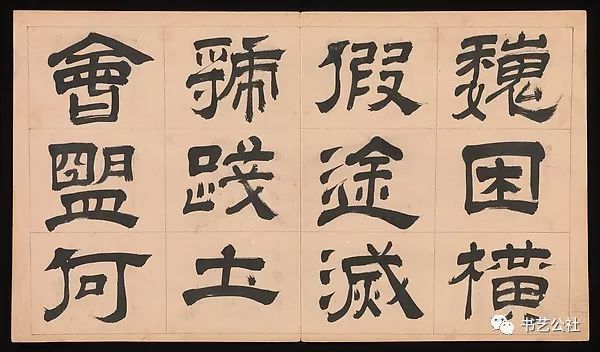 魏困橫
假途滅
虢踐土
會盟何
书艺公社